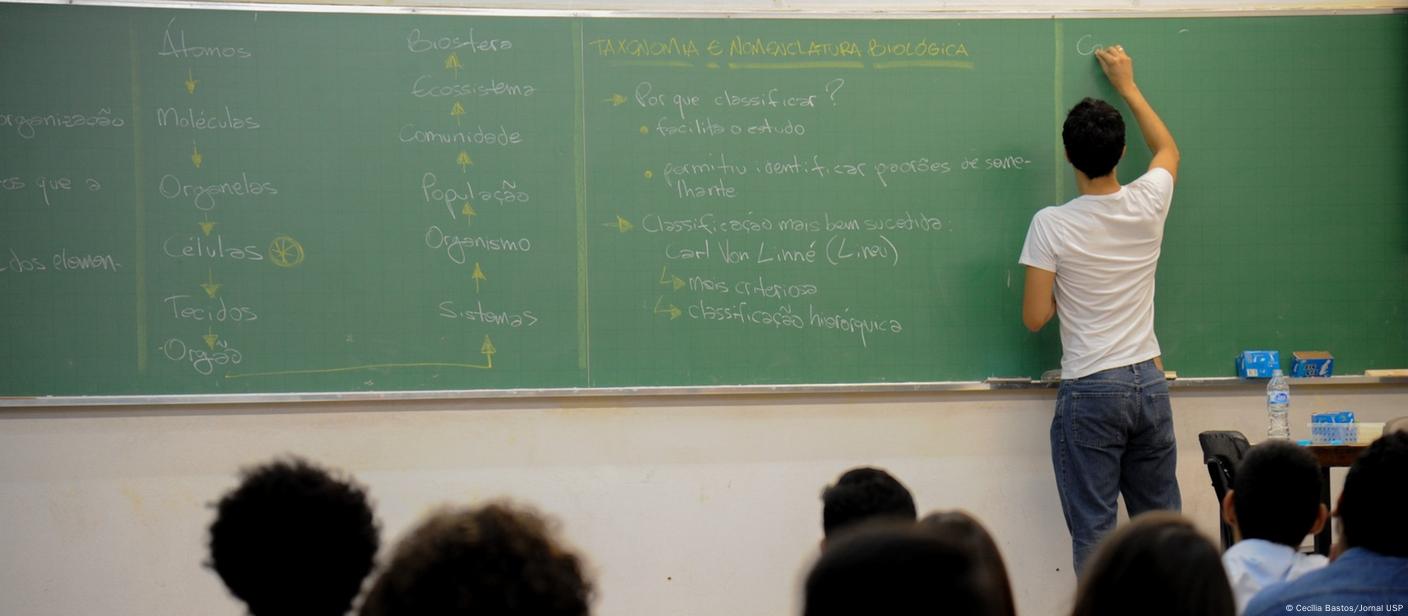 organização
os que a
dos elemen-
Átomos
Moléculas
Organelas
Células
Tecidos
Orgão
Biosfera
Ecossistema
Comunidade
População
Organismo
Sistemas
TAXONOMIA E NOMENCLATURA BIOLÓGICA
Por que classificar?
facilita o estudo
permitiu identificar padrões de seme-
lhante
Classificação mais bem sucedida:
Carl Von Linné (Lineu)
mais criteriosa
classificação hierárquica
© Cecília Bastos/Jornal USP